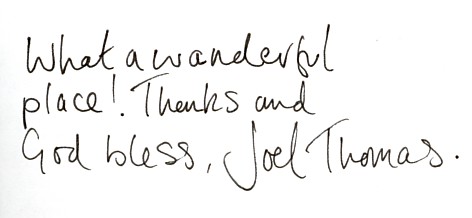 What a wanderful
place! Thanks and
God bless, Joel Thomas.